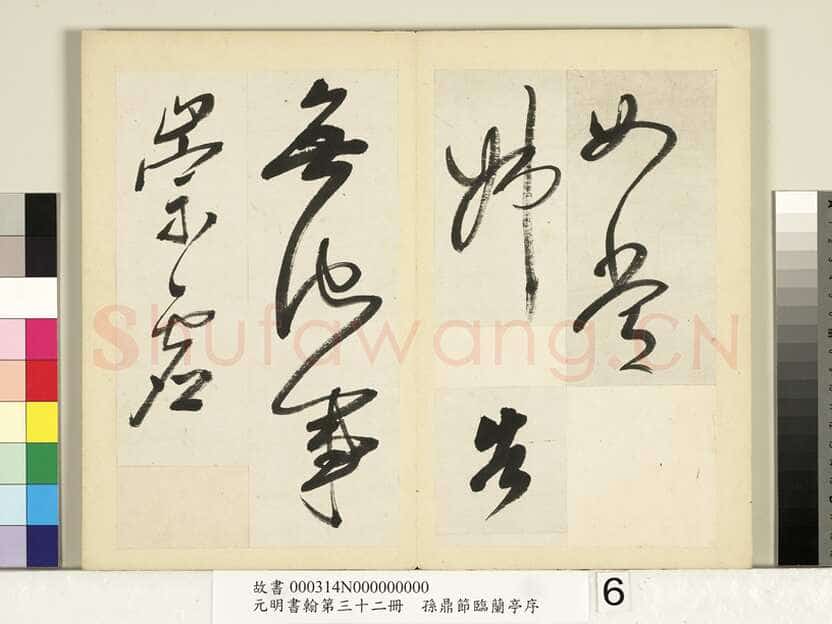 姊告
無他事
崇虛
Shufawang.CN
故書 000314N000000000
元明書翰第三十二冊 孫鼎節臨蘭亭序
6